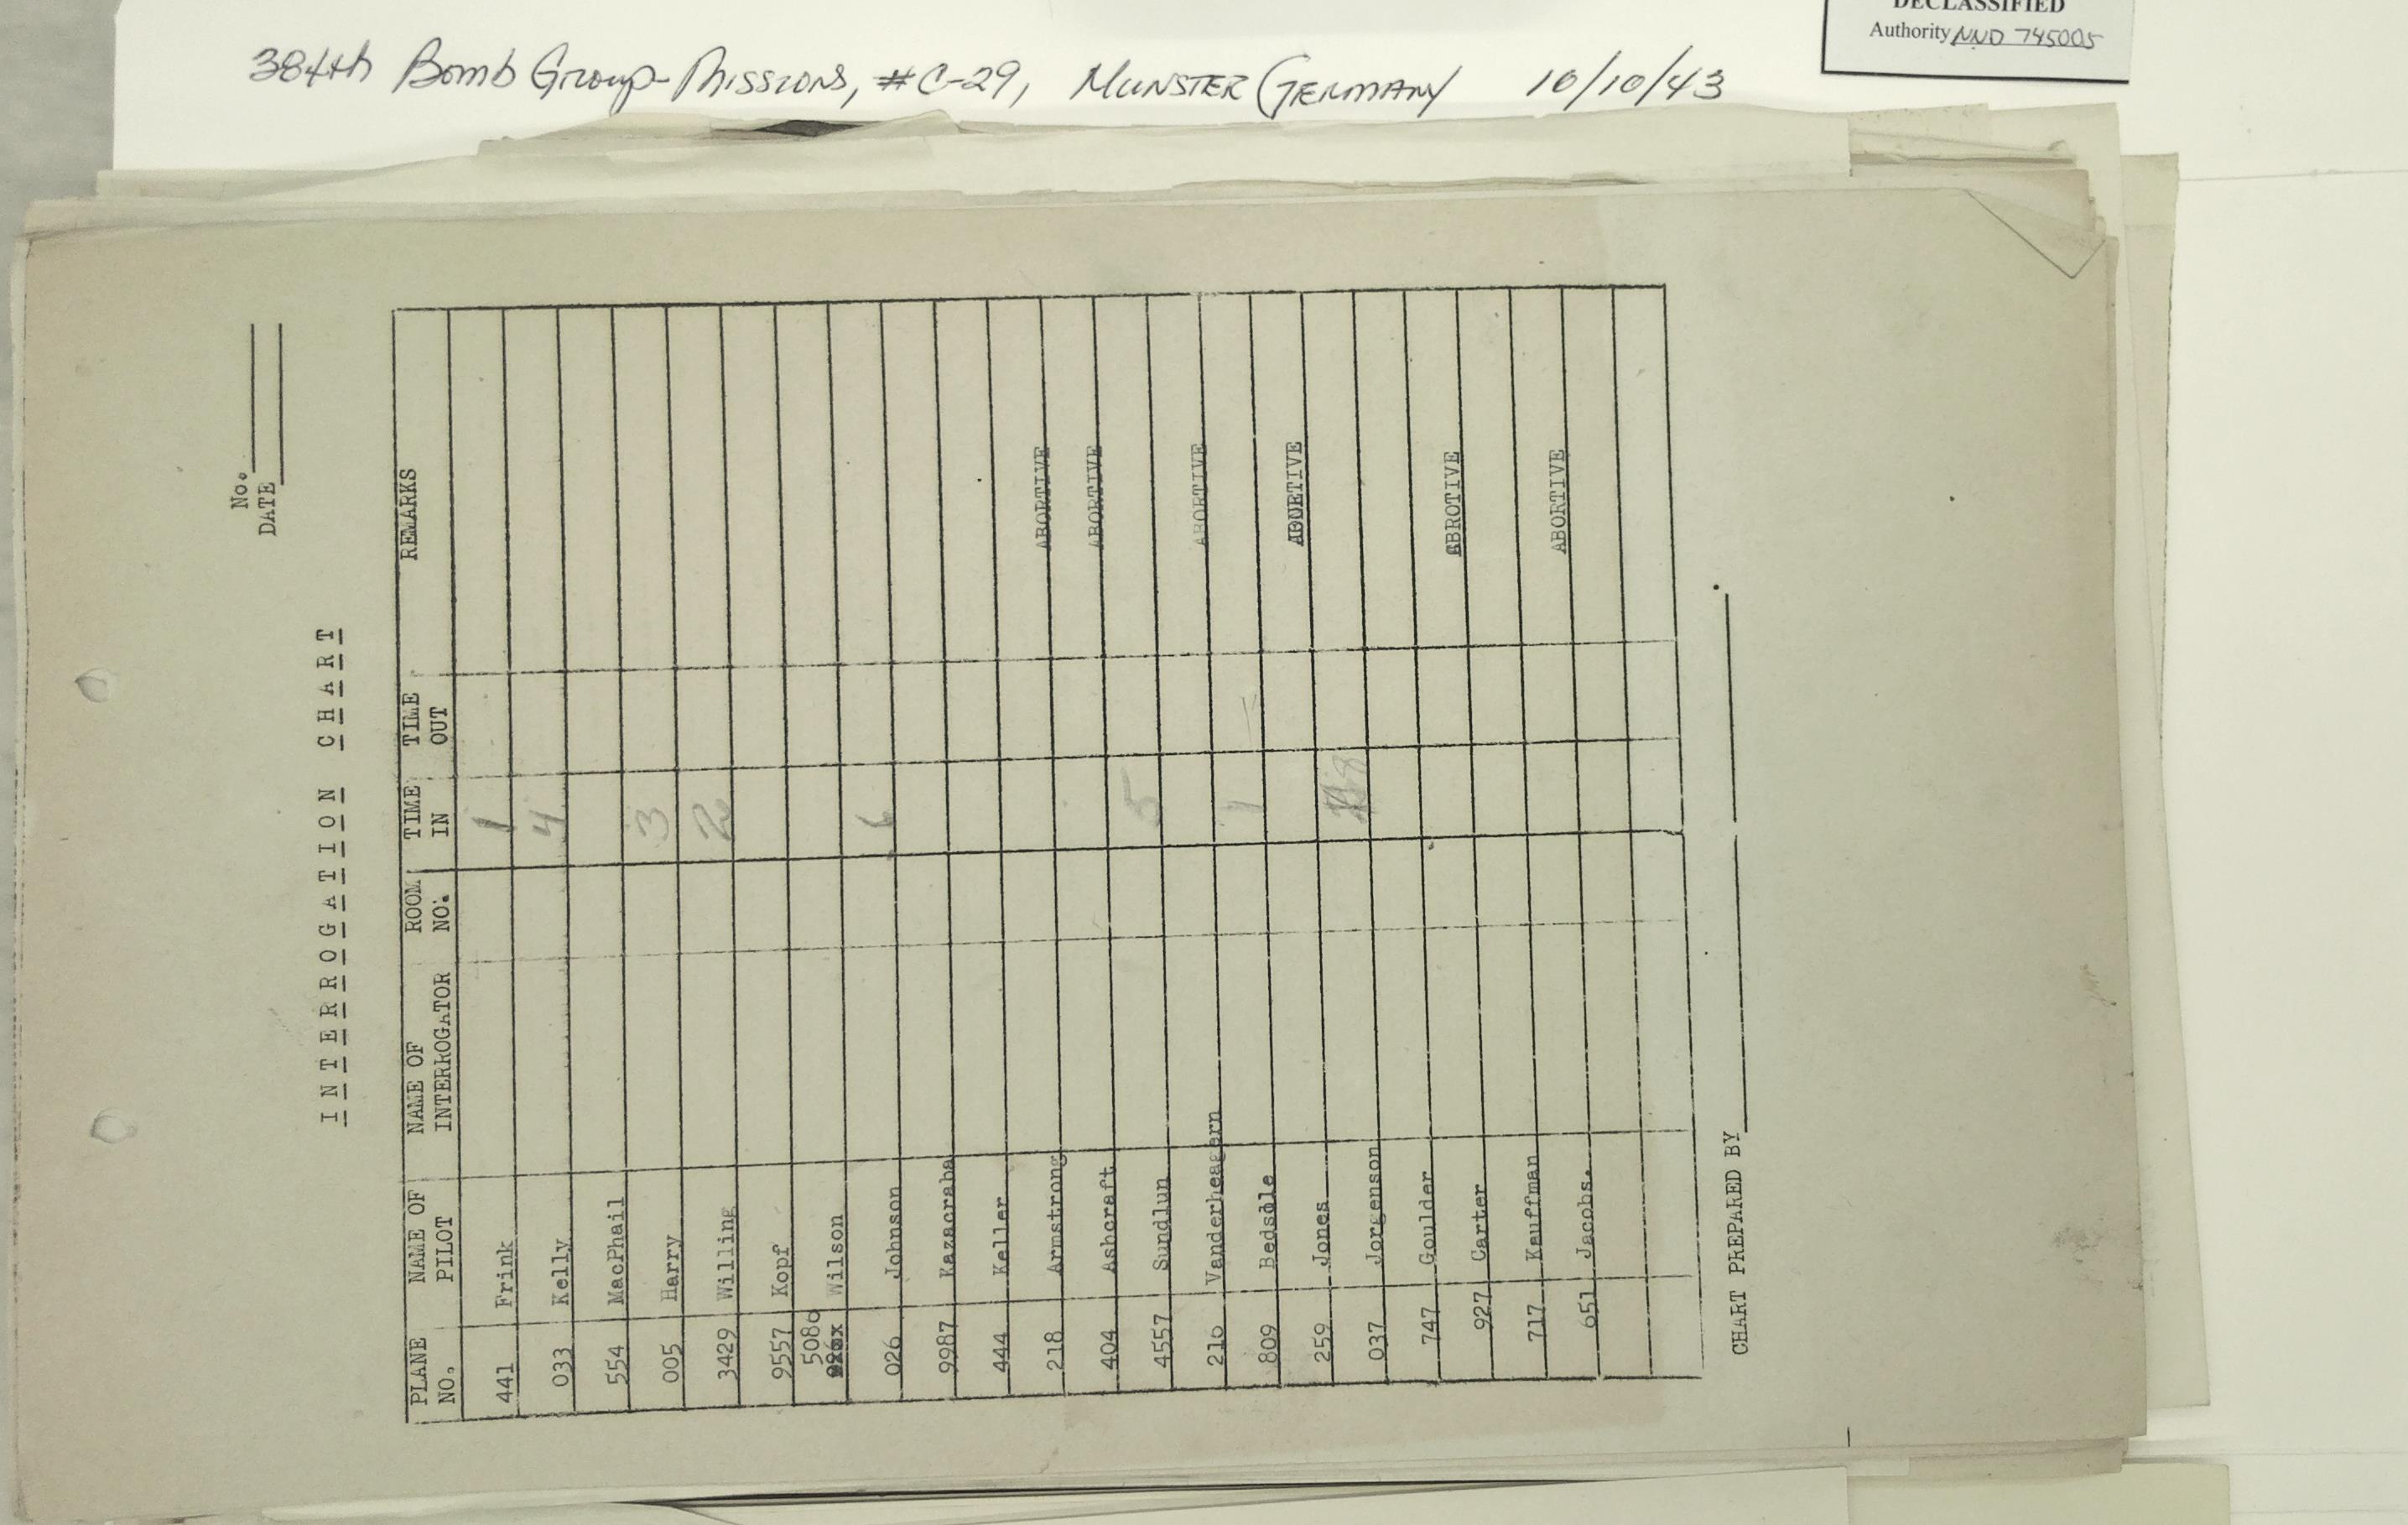 DECLASSIFIED
Authority NND 745005
384th Bomb Group Missions, #C-29, MUNSTER GERMANY 10/10/43
No.
DATE
INTERROGATION CHART
PLANE NO. NAME OF PILOT NAME OF INTERROGATOR ROOM NO. TIME IN TIME OUT REMARKS
441 Frink 1
033 Kelly 4
554 MacPhail
005 Harry 3
3429 Willing 2
9557 Kopf
5086 Wilson
026 Johnson 6
9987 Kazacraba
444 Keller
218 Armstrong ABORTIVE
404 Ashcraft ABORTIVE
4557 Sundlun 5
216 Vanderheagern ABORTIVE
809 Bedsole 7
259 Jones
037 Jorgenson 8
747 Goulder
927 Carter ABROTIVE
717 Kauffman
651 Jacobs. ABORTIVE
CHART PREPARED BY